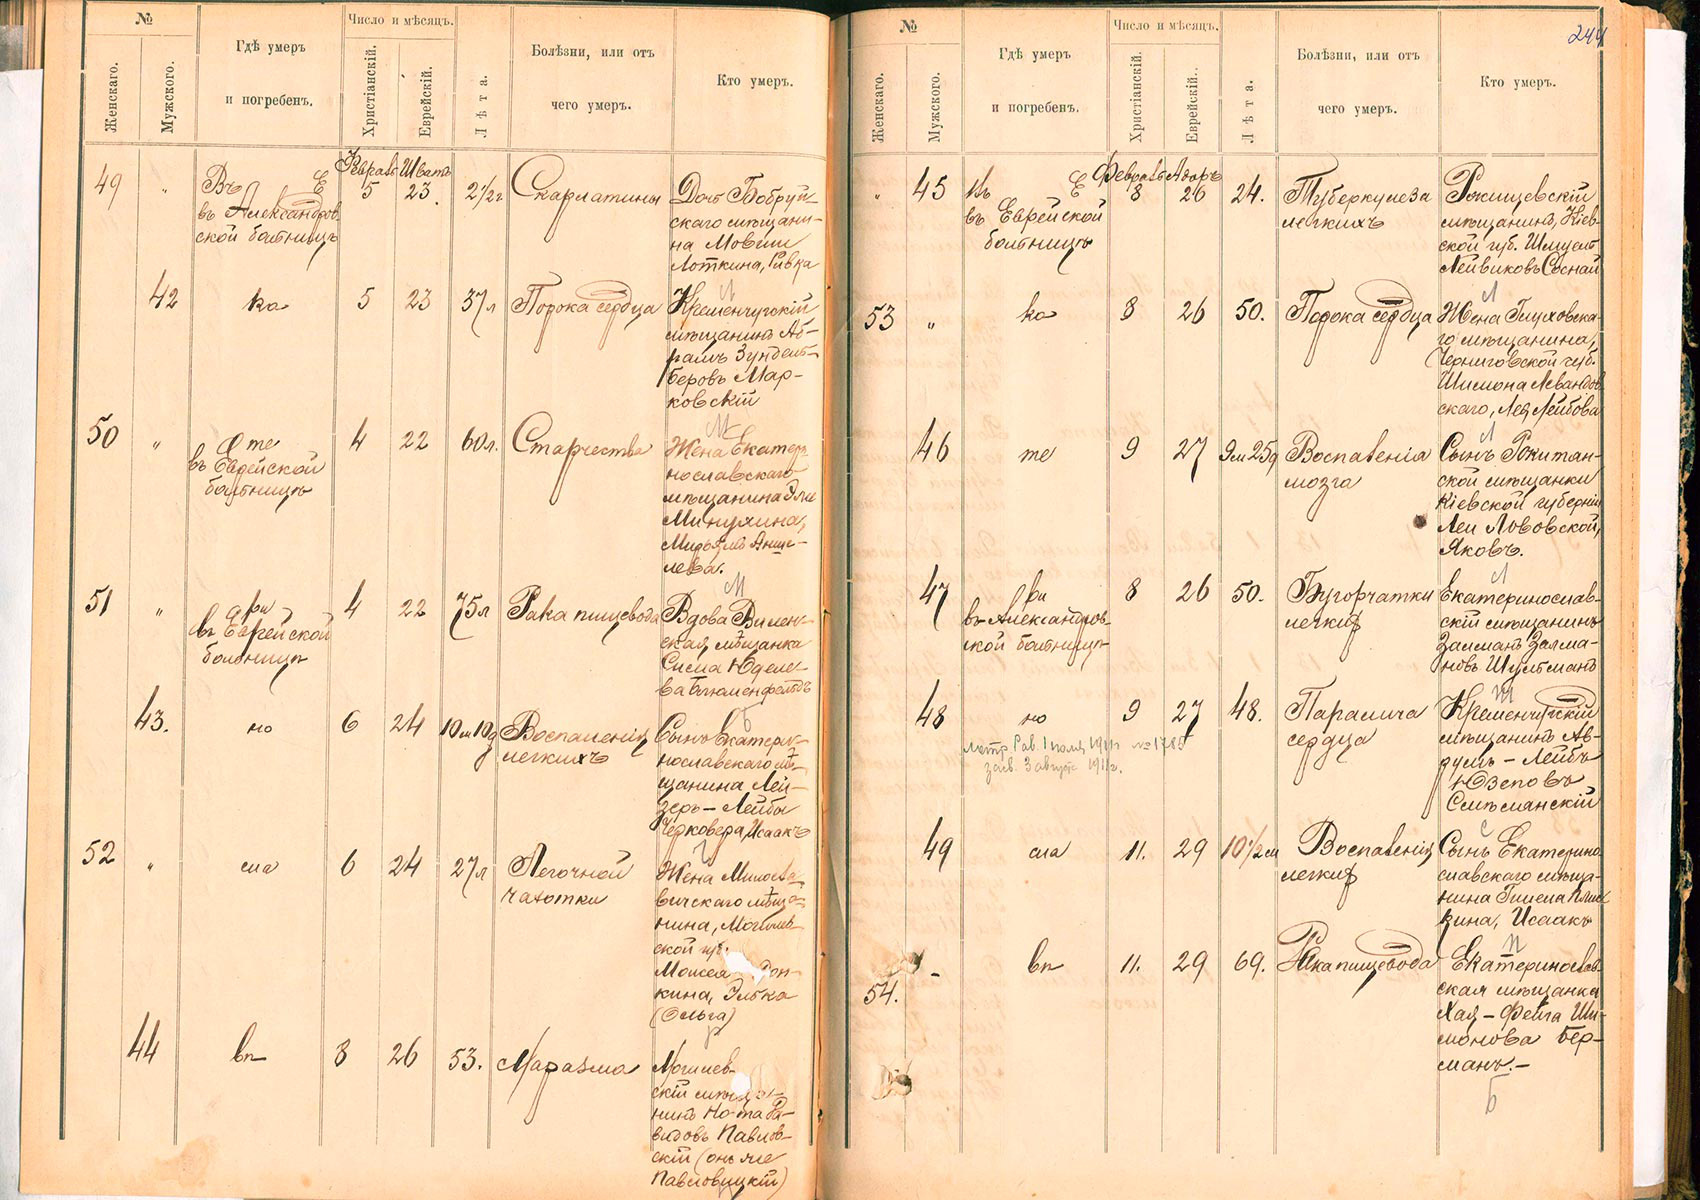 №
Женскаго.
Мужского.
Гдѣ умеръ
и погребенъ.
Число и мѣсяцъ.
Христіанскій.
Еврейскій.
Лѣта.
Болѣзни, или отъ
чего умеръ.
Кто умеръ.
Февраль Шватъ
49
"
Въ Е
въ Александров
ской больницѣ
5
23.
2 1/2 г
Скарлатины
Дочь Бобруй-
скаго мѣщани-
на Мовши
Лоткина, Ривка
42
ка
5
23
37 л
Порока сердца
Л
Кременчугскій
мѣщанинъ Аб-
рамъ Зундель-
беровъ Мар-
ковскій
50
"
те
въ Еврейской
больницѣ
4
22
60 л.
Старчества
М
Жена Екатери
нославскаго
мѣщанина Эли
Минухина,
Мирьямъ Анше-
лева.
51
"
ри
въ Еврейской
больницѣ
4
22
75 л
Рака пищевода
М
Вдова Вилен-
ская мѣщанка
Сисма Юделе-
ва Блюменфельдъ
43.
но
6
24
10 м 10 д
Воспаленія
легкихъ
Б
Сынъ Екатери-
нославскаго мѣ-
щанина Лей-
зеръ - Лейбы
Черковера, Исаакъ
52
"
сла
6
24
27 л
Легочной
чахотки
Ч
Жена Милосла-
вичскаго мѣща-
нина, Могилев-
ской губ.
Мовшея
кина, Элька
(Ольга)
44
вл
8
26
53.
Маразма
Р
Могилев-
скій мѣща-
нинъ Но-та Да-
видовъ Павлов-
скій (онъ же
Павловицкій)
244
№
Женскаго.
Мужского.
Гдѣ умеръ
и погребенъ.
Число и мѣсяцъ.
Христіанскій.
Еврейскій.
Лѣта.
Болѣзни, или отъ
чего умеръ.
Кто умеръ.
Февраль Адаръ
"
45
Е
въ Еврейской
больницѣ
8
26
24.
Туберкулеза
легкихъ
мѣщанинъ, Кіев-
ской губ. Шмуель
Лейвиковъ Соснай
53
"
ка
8
26
50.
Порока сердца
Л
Жена Глуховска-
го мѣщанина,
Черниговской губ.
Шимона Левандов
скаго, Лея Лейбова
46
те
9
27
9 м 25 д
Воспаленія
мозга
Л
Сынъ Рокитан-
ской мѣщанки
Кіевской губерніи
Леи Лововской,
Яковъ.
47
ри
въ Александров-
ской больницѣ
8
26
50.
Бугорчатки
легкихъ
Л
Екатеринослав-
скій мѣщанинъ
Залманъ Залма-
новъ Шульманъ
48
но
9
27
48.
Паралича
сердца
Метр. Рав. 1 іюля 1911г № 1785
засв. 3 августа 1911г.
Ш
Кременчугскій
мѣщанинъ Ав-
румъ - Лейбъ
Юзеповъ
Смѣлянскій
49
сла
11.
29
10 1/2 м
Воспаленія
легкихъ
С
Сынъ Екатерино
славскаго мѣща-
кина, Исаакъ
54.
-
вл
11.
29
69.
Рака пищевода
П
Екатеринослав-
ская мѣщанка
Хая - Фейга Ши-
монова Бер-
манъ. -
Б